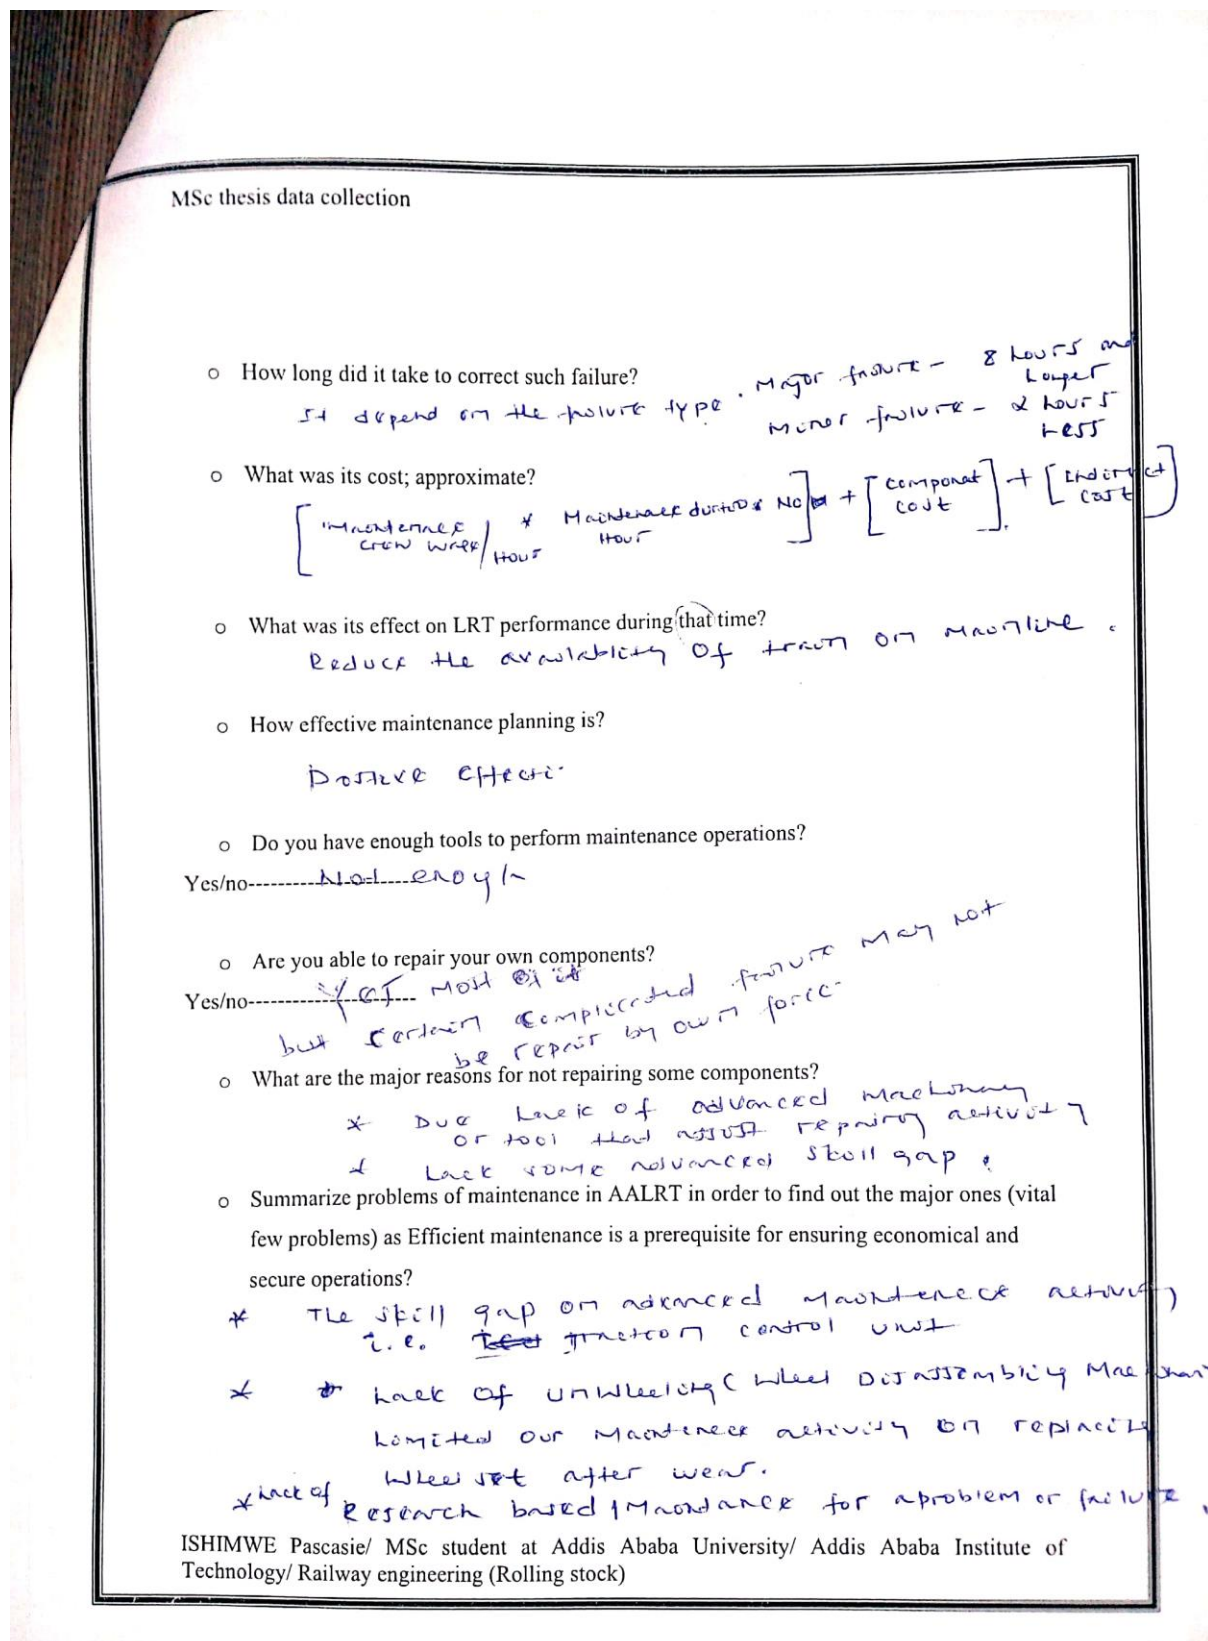 MSc thesis data collection
o How long did it take to correct such failure?
It depend on the failure type. Major failure - 8 hours and
Longer
Minor failure - 2 hours
Less
o What was its cost; approximate?
[Maintenance crew /Hour * Maintenance Hour No] + [component cost] + [Indirect cost]
o What was its effect on LRT performance during that time?
Reduce the availablity of train on Mainline.
o How effective maintenance planning is?
Positive effect
o Do you have enough tools to perform maintenance operations?
Yes/no----------Not enough
o Are you able to repair your own components?
Yes/no----------Yes Most of it
but certain complicated failure may not
be repair by own force.
o What are the major reasons for not repairing some components?
* Due Lack of advanced Machinary
or tool that assist repairing activity
* Lack some advanced skill gap.
o Summarize problems of maintenance in AALRT in order to find out the major ones (vital
few problems) as Efficient maintenance is a prerequisite for ensuring economical and
secure operations?
* The skill gap on advanced Maintenece activity
i.e. traction control unit
* Lack of unwheeling ( Wheel Disassembling
Limited our Maintenece activity on replacing
Wheel set after wear.
* Lack of Research based Maintance for a problem or failure.
ISHIMWE Pascasie/ MSc student at Addis Ababa University/ Addis Ababa Institute of
Technology/ Railway engineering (Rolling stock)